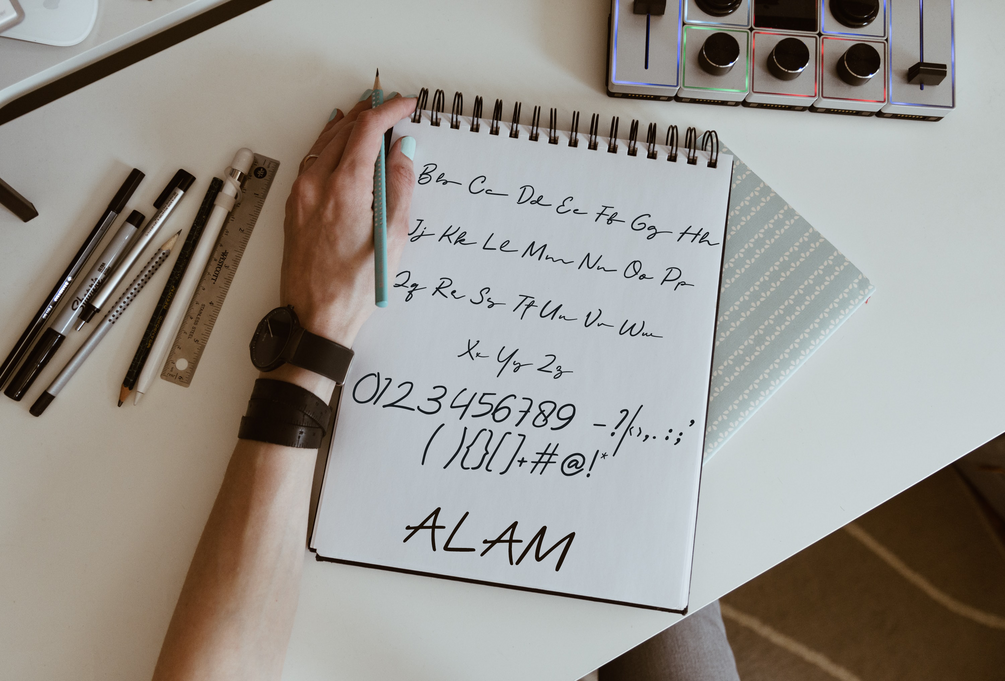 Bb Cc Dd Ee Ff Gg Hh
Jj Kk Ll Mm Nn Oo Pp
Qq Rr Ss Tt Uu Vv Ww
Xx Yy Zz
0123456789 -?/‹›,.:;'
( ){}[]+#@!*
ALAM